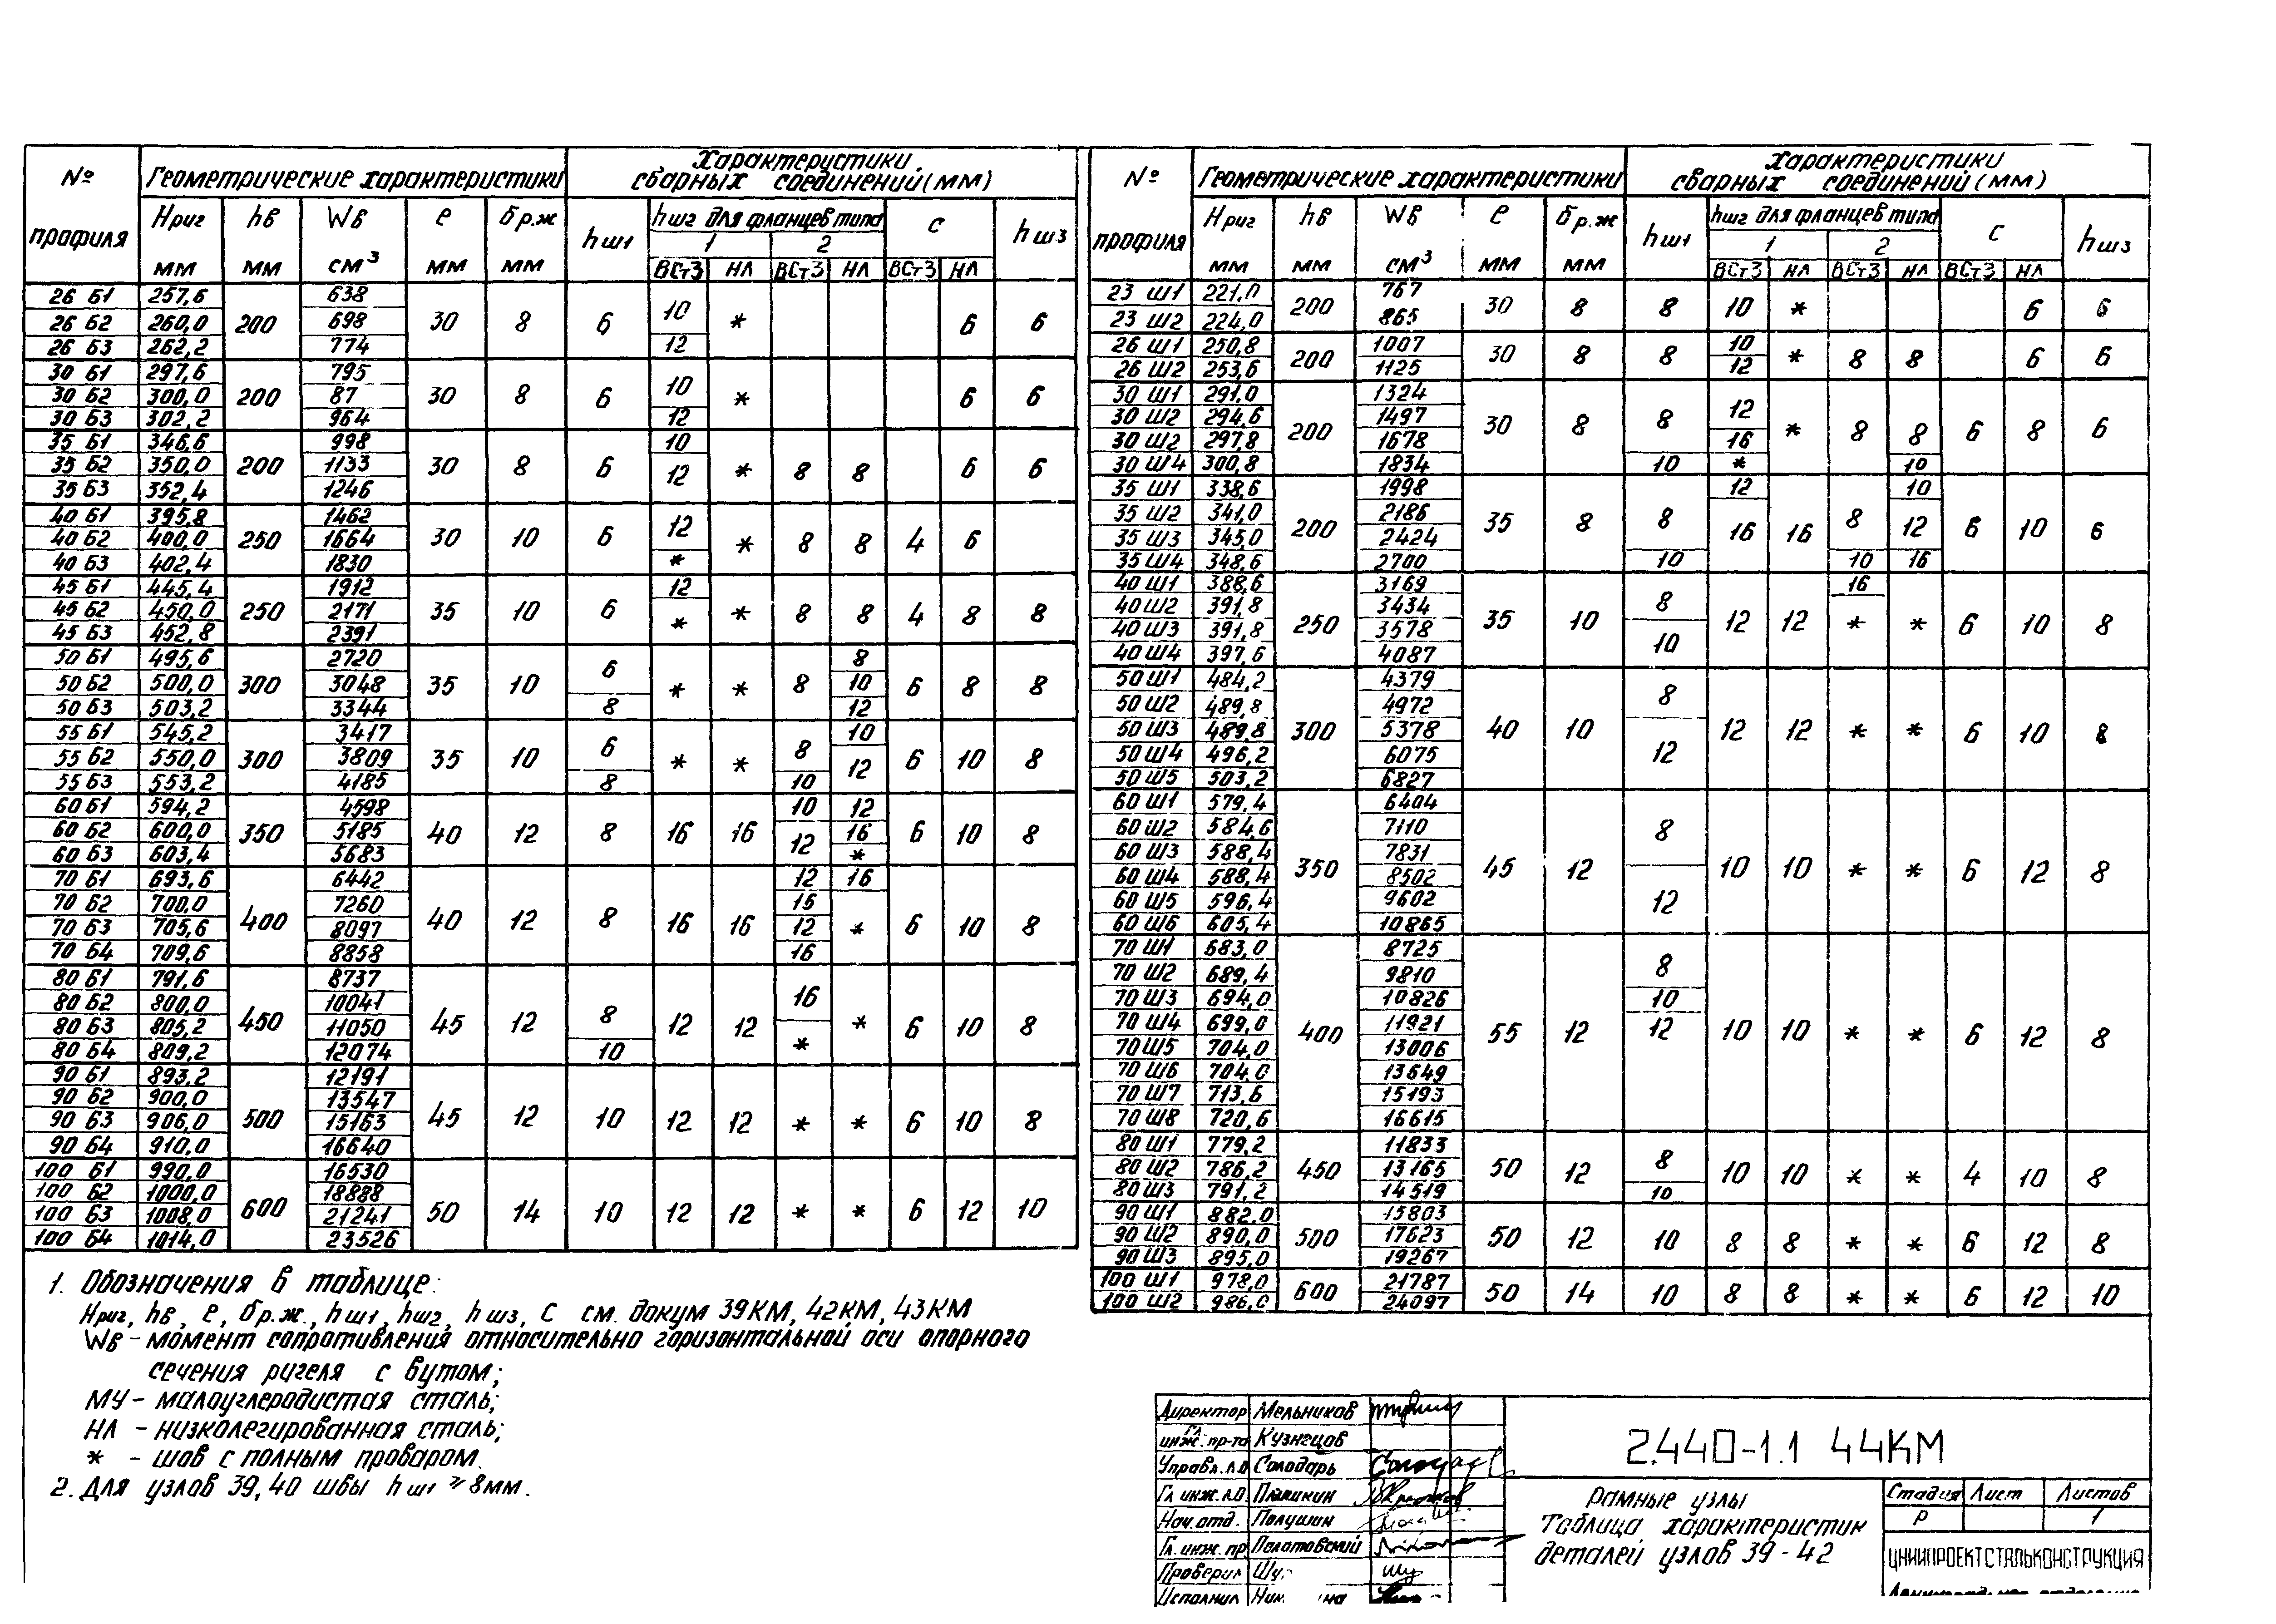 № профиля | Геометрические характеристики | Характеристики сварных соединений (мм)
Нриг мм | hв мм | Wв см³ | е мм | δр.ж мм | hш1 | hшг для фланцев типа | с | hш3
1 | 2
ВСт3 | НЛ | ВСт3 | НЛ | ВСт3 | НЛ
26 Б1 257,6 638
26 Б2 260,0 200 698 30 8 6 10 * 6 6
26 Б3 262,2 774 12
30 Б1 297,6 795
30 Б2 300,0 200 87 30 8 6 10 * 6 6
30 Б3 302,2 964 12
35 Б1 346,6 998 10
35 Б2 350,0 200 1133 30 8 6 12 * 8 8 6 6
35 Б3 352,4 1246
40 Б1 395,8 1462
40 Б2 400,0 250 1664 30 10 6 12 * 8 8 4 6
40 Б3 402,4 1830 *
45 Б1 445,4 1912 12
45 Б2 450,0 250 2171 35 10 6 * * 8 8 4 8 8
45 Б3 452,8 2391
50 Б1 495,6 2720 6 8
50 Б2 500,0 300 3048 35 10 * * 8 10 6 8 8
50 Б3 503,2 3344 8 12
55 Б1 545,2 3417 10
55 Б2 550,0 300 3809 35 10 6 * * 8 12 6 10 8
55 Б3 553,2 4185 8 10
60 Б1 594,2 4598 10 12
60 Б2 600,0 350 5185 40 12 8 16 16 12 16 6 10 8
60 Б3 603,4 5683 *
70 Б1 693,6 6442 12 16
70 Б2 700,0 7260 16
70 Б3 705,6 400 8097 40 12 8 16 16 12 * 6 10 8
70 Б4 709,6 8858 16
80 Б1 791,6 8737
80 Б2 800,0 10041 16
80 Б3 805,2 450 11050 45 12 8 12 12 * * 6 10 8
80 Б4 809,2 12074 10
90 Б1 893,2 12191
90 Б2 900,0 13547
90 Б3 906,0 500 15163 45 12 10 12 12 * * 6 10 8
90 Б4 910,0 16640
100 Б1 990,0 16530
100 Б2 1000,0 18888
100 Б3 1008,0 600 21241 50 14 10 12 12 * * 6 12 10
100 Б4 1014,0 23526
№ профиля | Геометрические характеристики | Характеристики сварных соединений (мм)
Нриг мм | hв мм | Wв см³ | е мм | δр.ж мм | hш1 | hшг для фланцев типа | с | hш3
1 | 2
ВСт3 | НЛ | ВСт3 | НЛ | ВСт3 | НЛ
23 Ш1 221,0 200 767 30 8 8 10 * 6 6
23 Ш2 224,0 865
26 Ш1 250,8 200 1007 30 8 8 10 * 8 8 6 6
26 Ш2 253,6 1125 12
30 Ш1 291,0 1324
30 Ш2 294,6 200 1497 30 8 8 12 * 8 8 6 8 6
30 Ш2 297,8 1678 16
30 Ш4 300,8 1834 10 * 10
35 Ш1 338,6 1998 12 10
35 Ш2 341,0 200 2186 35 8 8 16 16 8 12 6 10 6
35 Ш3 345,0 2424
35 Ш4 348,6 2700 10 10 16
40 Ш1 388,6 3169 16
40 Ш2 391,8 3434 8
40 Ш3 391,8 250 3578 35 10 12 12 * * 6 10 8
40 Ш4 397,6 4087 10
50 Ш1 484,2 4379
50 Ш2 489,8 4972 8
50 Ш3 489,8 300 5378 40 10 12 12 * * 6 10 8
50 Ш4 496,2 6075 12
50 Ш5 503,2 6827
60 Ш1 579,4 6404
60 Ш2 584,6 7110 8
60 Ш3 588,4 7831
60 Ш4 588,4 350 8502 45 12 10 10 * * 6 12 8
60 Ш5 596,4 9602 12
60 Ш6 605,4 10865
70 Ш1 683,0 8725
70 Ш2 689,4 9810 8
70 Ш3 694,0 10826 10
70 Ш4 699,0 400 11921 55 12 12 10 10 * * 6 12 8
70 Ш5 704,0 13006
70 Ш6 704,0 13649
70 Ш7 713,6 15193
70 Ш8 720,6 16615
80 Ш1 779,2 11833
80 Ш2 786,2 450 13165 50 12 8 10 10 * * 4 10 8
80 Ш3 791,2 14519 10
90 Ш1 882,0 15803
90 Ш2 890,0 500 17623 50 12 10 8 8 * * 6 12 8
90 Ш3 895,0 19267
100 Ш1 978,0 600 21787 50 14 10 8 8 * * 6 12 10
100 Ш2 986,0 24097
1. Обозначения в таблице:
Нриг, hв, е, δр.ж., hш1, hшг, hш3, С см. докум 39КМ, 42КМ, 43КМ
Wв – момент сопротивления относительно горизонтальной оси опорного
сечения ригеля с вутом;
МУ – малоуглеродистая сталь;
НЛ – низколегированная сталь;
* – шов с полным проваром.
2. Для узлов 39, 40 швы hш1 ≥ 8мм.
Директор Мельников
Гл. инж. пр-та Кузнецов
Управл. Л.О Солодарь
Гл инж. Л.О.
Нач. отд. Полушин
Гл. инж. пр.
Проверил Шу
Исполнил
2.440-1.1 44КМ
Рамные узлы
Таблица характеристик
деталей узлов 39-42
Стадия Лист Листов
Р 1
ЦНИИПРОЕКТСТАЛЬКОНСТРУКЦИЯ